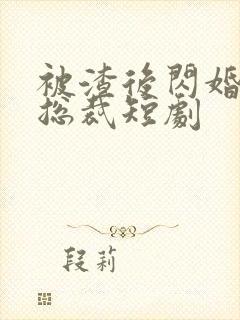 被渣後閃婚
總裁短劇
段莉